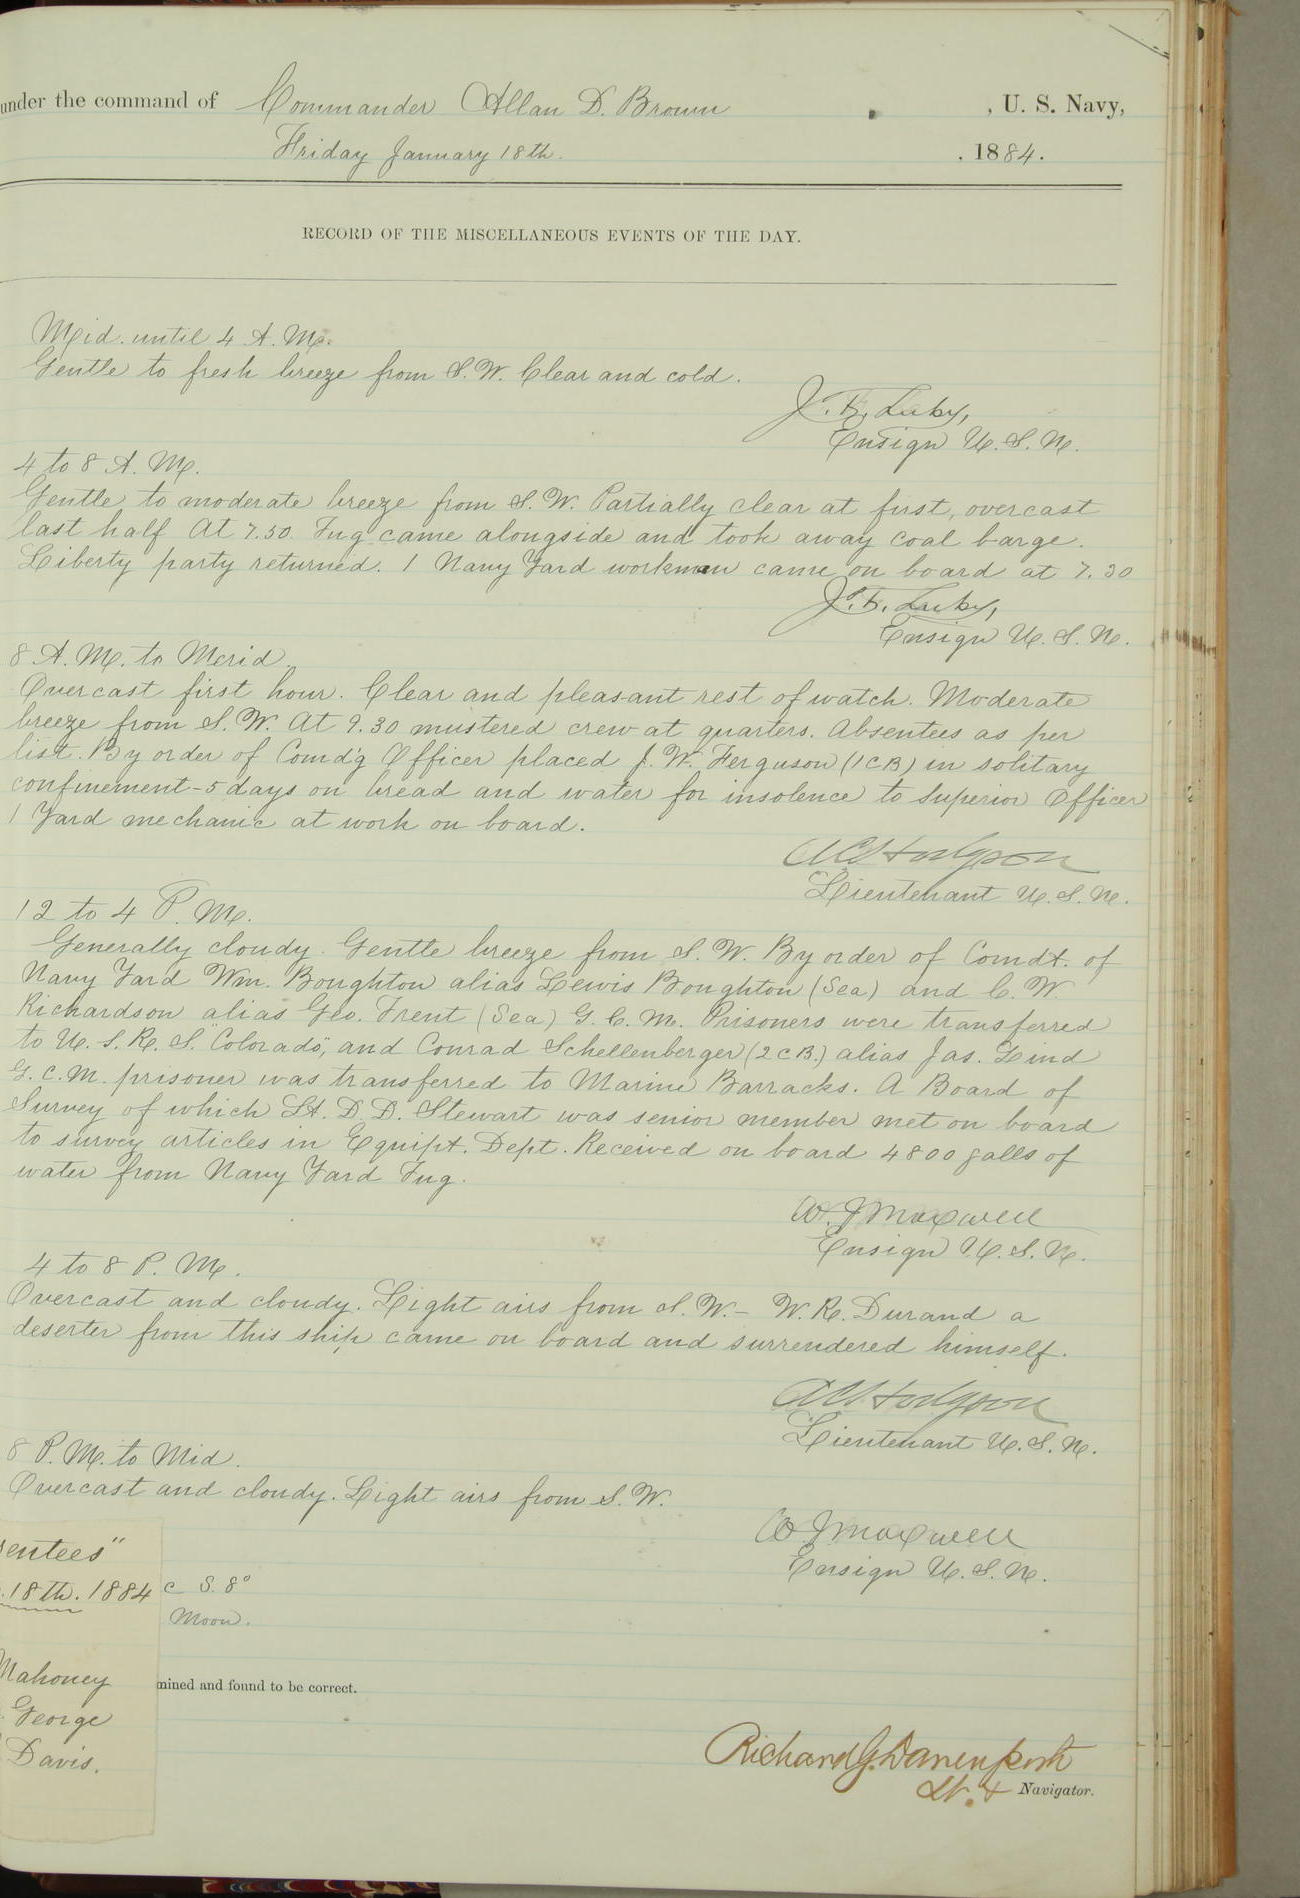 under the command of Commander Allan D. Brown , U. S. Navy,
Friday January 18th. , 1884.
RECORD OF THE MISCELLANEOUS EVENTS OF THE DAY.
Mid. until 4 A. M.
Gentle to fresh breeze from S. W. Clear and cold.
J. F. Luby,
Ensign U. S. N.
4 to 8 A. M.
Gentle to moderate breeze from S. W. Partially clear at first, overcast
last half At 7.50 Tug came alongside and took away coal barge.
Liberty party returned. 1 Navy Yard workman came on board at 7.30
J. F. Luby,
Ensign U. S. N.
8 A. M. to Merid.
Overcast first hour. Clear and pleasant rest of watch. Moderate
breeze from S. W. At 9.30 mustered crew at quarters. Absentees as per
list. By order of Comd'g Officer placed J. W. Ferguson (1 C B) in solitary
confinement - 5 days on bread and water for insolence to Superior Officer
1 Yard mechanic at work on board.
A C Hodgson
Lieutenant U. S. N.
12 to 4 P. M.
Generally cloudy. Gentle breeze from S. W. By order of Comdt. of
Navy Yard Wm. Boughton alias Lewis Boughton (Sea) and C. W.
Richardson alias Geo. Trent (Sea) G. C. M. Prisoners were transferred
to U. S. R. S. "Colorado", and Conrad Schellenberger (2 C B.) alias Jas. Lind
G. C. M. prisoner was transferred to Marine Barracks. A Board of
Survey of which Lt. D. D. Stewart was senior member met on board
to survey articles in Equipt. Dept. Received on board 4800 galls of
water from Navy Yard Tug.
W. J Maxwell
Ensign U. S. N.
4 to 8 P. M.
Overcast and cloudy. Light airs from S. W. - W. R. Durand a
deserter from this ship came on board and surrendered himself.
A C Hodgson
Lieutenant U. S. N.
8 P. M. to Mid.
Overcast and cloudy. Light airs from S. W.
W J Maxwell
Ensign U. S. N.
sentees"
18th. 1884
c S. 8°
Moon.
Mahoney
George
Davis.
mined and found to be correct.
Richard G. Davenport
Lt. & Navigator.